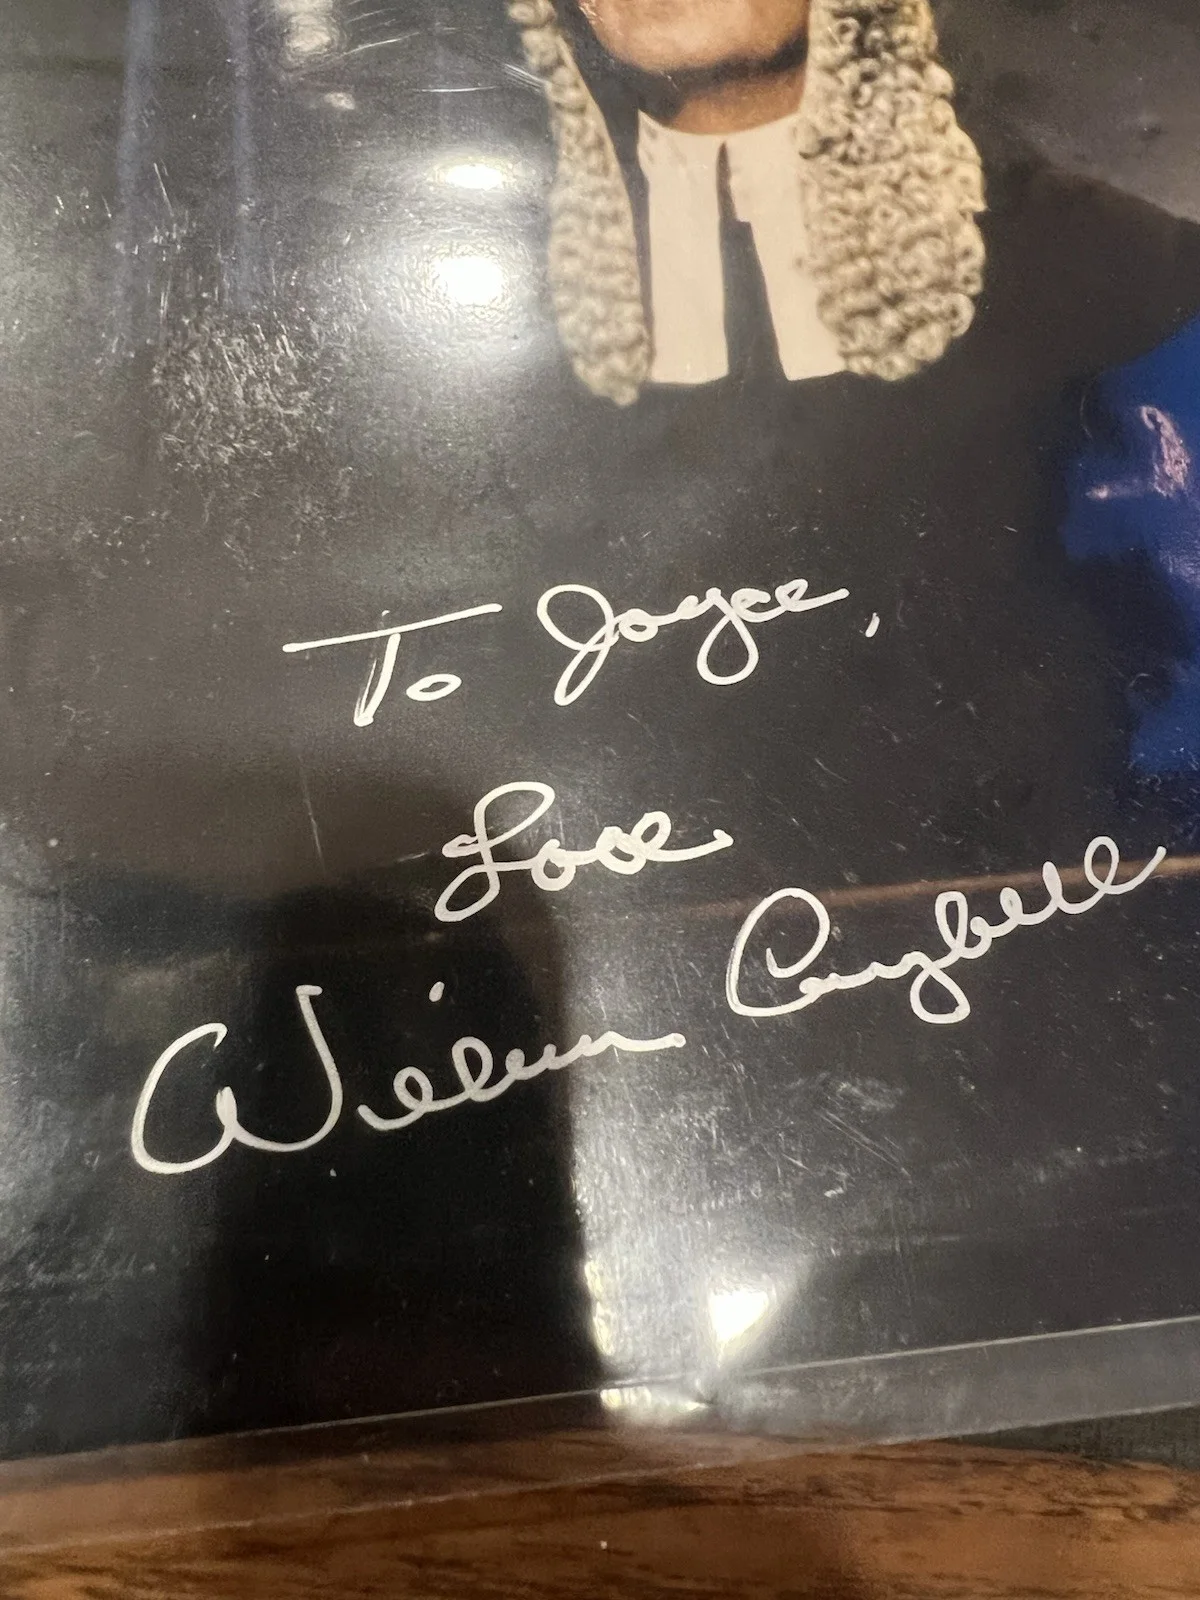 To Joyce,
Love
William Campbell